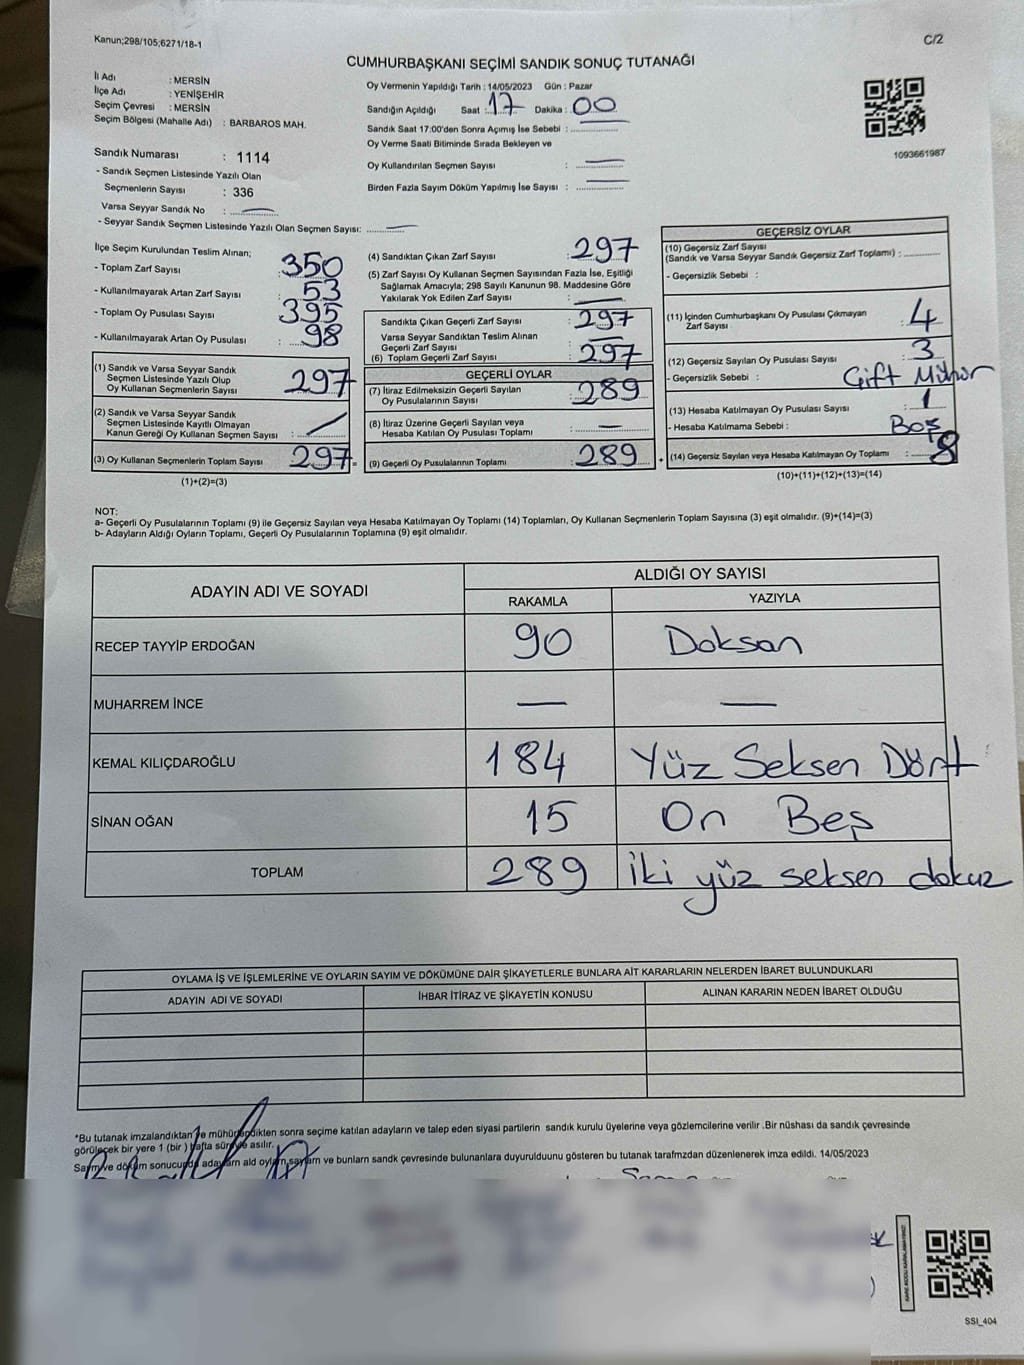 Kanun;298/105;6271/18-1
C/2
CUMHURBAŞKANI SEÇİMİ SANDIK SONUÇ TUTANAĞI
İl Adı : MERSİN
İlçe Adı : YENİŞEHİR
Seçim Çevresi : MERSİN
Seçim Bölgesi (Mahalle Adı) : BARBAROS MAH.
Oy Vermenin Yapıldığı Tarih : 14/05/2023 Gün : Pazar
Sandığın Açıldığı Saat : 17 Dakika : 00
Sandık Saat 17:00'den Sonra Açımış İse Sebebi :
Oy Verme Saati Bitiminde Sırada Bekleyen ve
Oy Kullandırılan Seçmen Sayısı : —
Birden Fazla Sayım Döküm Yapılmış İse Sayısı : —
1093661987
Sandık Numarası : 1114
- Sandık Seçmen Listesinde Yazılı Olan
Seçmenlerin Sayısı : 336
Varsa Seyyar Sandık No : —
- Seyyar Sandık Seçmen Listesinde Yazılı Olan Seçmen Sayısı: —
İlçe Seçim Kurulundan Teslim Alınan;
- Toplam Zarf Sayısı : 350
- Kullanılmayarak Artan Zarf Sayısı : 53
- Toplam Oy Pusulası Sayısı : 395
- Kullanılmayarak Artan Oy Pusulası : 98
(1) Sandık ve Varsa Seyyar Sandık
Seçmen Listesinde Yazılı Olup
Oy Kullanan Seçmenlerin Sayısı : 297
(2) Sandık ve Varsa Seyyar Sandık
Seçmen Listesinde Kayıtlı Olmayan
Kanun Gereği Oy Kullanan Seçmen Sayısı :
(3) Oy Kullanan Seçmenlerin Toplam Sayısı : 297 =
(1)+(2)=(3)
(4) Sandıktan Çıkan Zarf Sayısı : 297
(5) Zarf Sayısı Oy Kullanan Seçmen Sayısından Fazla İse, Eşitliği
Sağlamak Amacıyla; 298 Sayılı Kanunun 98. Maddesine Göre
Yakılarak Yok Edilen Zarf Sayısı : —
Sandıkta Çıkan Geçerli Zarf Sayısı : 297
Varsa Seyyar Sandıktan Teslim Alınan
Geçerli Zarf Sayısı : —
(6) Toplam Geçerli Zarf Sayısı : 297
GEÇERLİ OYLAR
(7) İtiraz Edilmeksizin Geçerli Sayılan
Oy Pusulalarının Sayısı : 289
(8) İtiraz Üzerine Geçerli Sayılan veya
Hesaba Katılan Oy Pusulası Toplamı : —
(9) Geçerli Oy Pusulalarının Toplamı : 289 +
GEÇERSİZ OYLAR
(10) Geçersiz Zarf Sayısı
(Sandık ve Varsa Seyyar Sandık Geçersiz Zarf Toplamı) :
- Geçersizlik Sebebi :
(11) İçinden Cumhurbaşkanı Oy Pusulası Çıkmayan
Zarf Sayısı : 4
(12) Geçersiz Sayılan Oy Pusulası Sayısı : 3
- Geçersizlik Sebebi : Çift Mühür
(13) Hesaba Katılmayan Oy Pusulası Sayısı : 1
- Hesaba Katılmama Sebebi : Boş
(14) Geçersiz Sayılan veya Hesaba Katılmayan Oy Toplamı : 8
(10)+(11)+(12)+(13)=(14)
NOT:
a- Geçerli Oy Pusulalarının Toplamı (9) ile Geçersiz Sayılan veya Hesaba Katılmayan Oy Toplamı (14) Toplamları, Oy Kullanan Seçmenlerin Toplam Sayısına (3) eşit olmalıdır. (9)+(14)=(3)
b- Adayların Aldığı Oyların Toplamı, Geçerli Oy Pusulalarının Toplamına (9) eşit olmalıdır.
ADAYIN ADI VE SOYADI
ALDIĞI OY SAYISI
RAKAMLA YAZIYLA
RECEP TAYYİP ERDOĞAN 90 Doksan
MUHARREM İNCE — —
KEMAL KILIÇDAROĞLU 184 Yüz Seksen Dört
SİNAN OĞAN 15 On Beş
TOPLAM 289 iki yüz seksen dokuz
OYLAMA İŞ VE İŞLEMLERİNE VE OYLARIN SAYIM VE DÖKÜMÜNE DAİR ŞİKAYETLERLE BUNLARA AİT KARARLARIN NELERDEN İBARET BULUNDUKLARI
ADAYIN ADI VE SOYADI İHBAR İTİRAZ VE ŞİKAYETİN KONUSU ALINAN KARARIN NEDEN İBARET OLDUĞU
*Bu tutanak imzalandıktan ve mühürlendikten sonra seçime katılan adayların ve talep eden siyasi partilerin sandık kurulu üyelerine veya gözlemcilerine verilir .Bir nüshası da sandık çevresinde
görülecek bir yere 1 (bir ) hafta süreyle asılır.
Sayım ve döküm sonucunda adayların ald oyların,sayım ve bunlarn sandk çevresinde bulunanlara duyurulduunu gösteren bu tutanak tarafmzdan düzenlenerek imza edildi. 14/05/2023
SSI_404